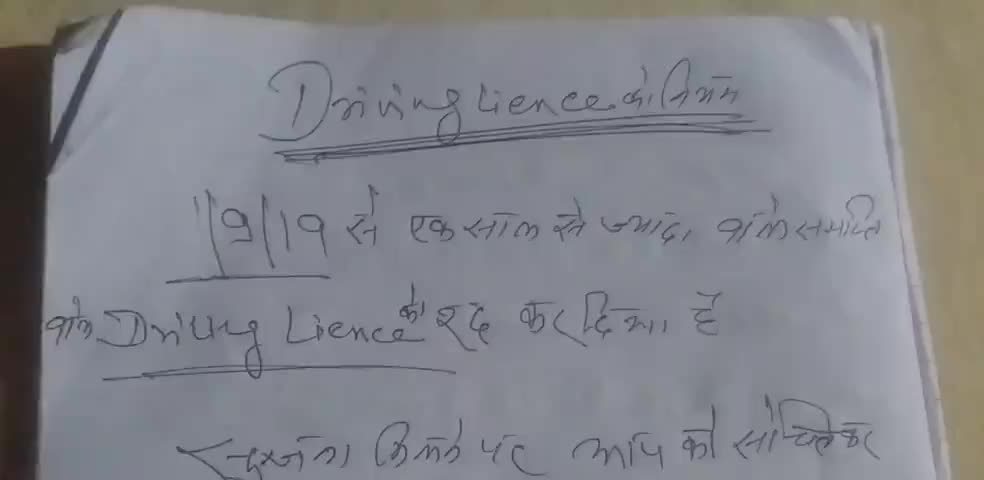 Driving Lience का नियम
1/9/19 से एक साल से ज्यादा वाले समाप्ति
वाले Driving Lience को रद कर दिया है
पर आप को